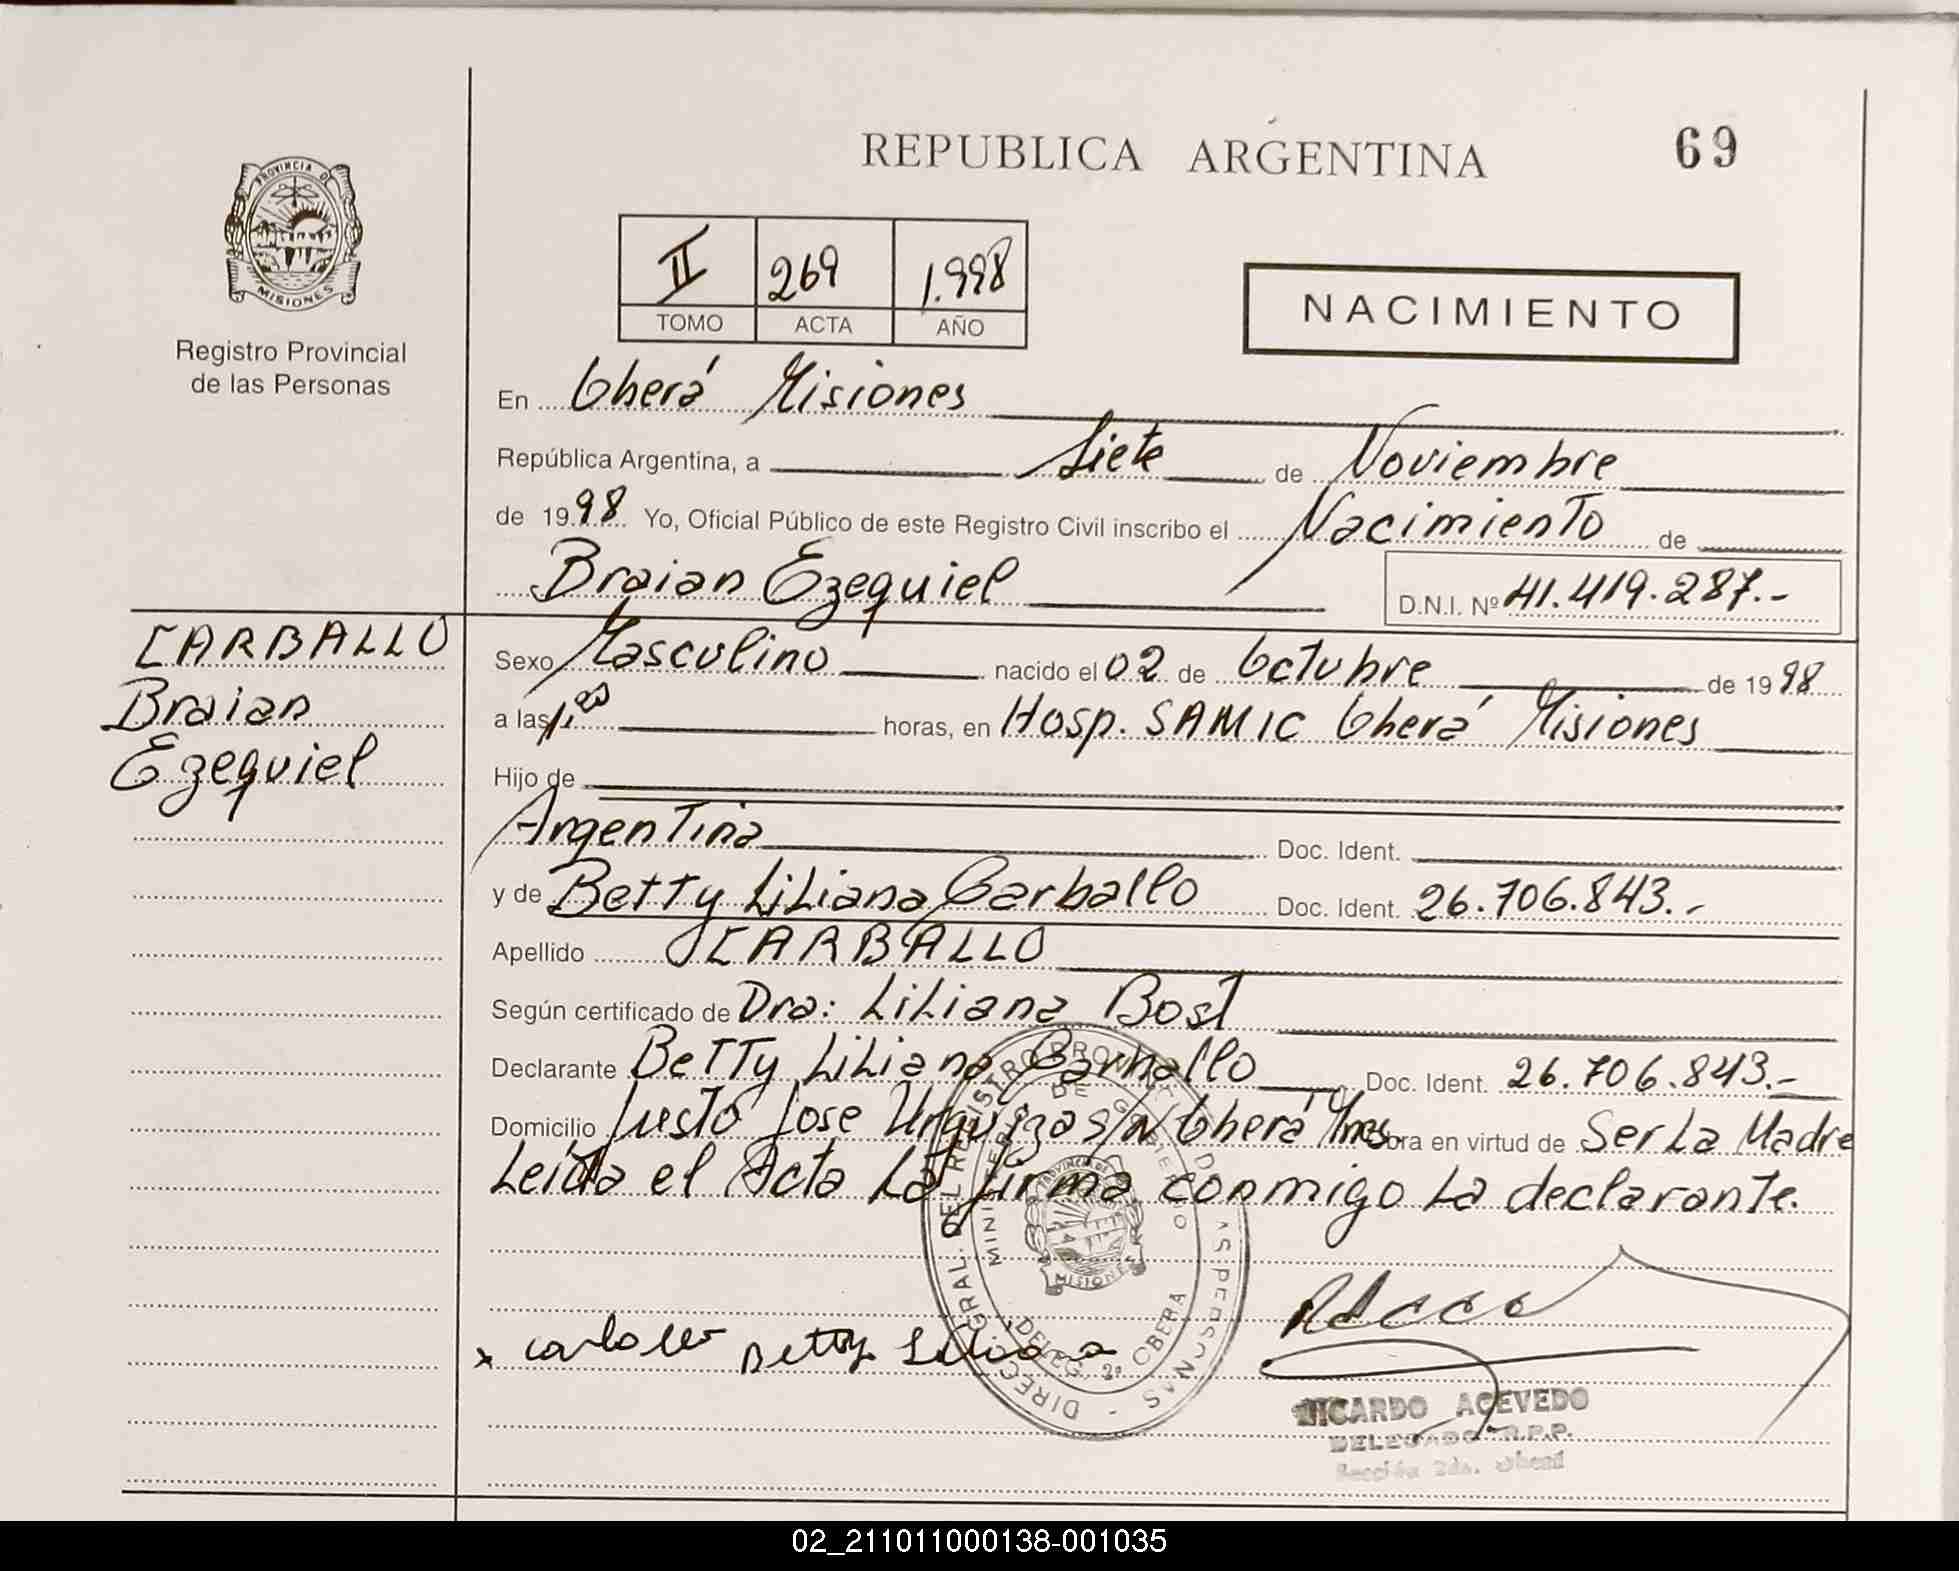 REPUBLICA ARGENTINA
69
PROVINCIA DE
MISIONES
Registro Provincial
de las Personas
II 269 1.998
TOMO ACTA AÑO
NACIMIENTO
En Oberá Misiones
República Argentina, a Siete de Noviembre
de 1998 Yo, Oficial Público de este Registro Civil inscribo el Nacimiento de
Braian Ezequiel
D.N.I. Nº 41.419.287.-
CARBALLO
Braian
Ezequiel
Sexo Masculino nacido el 02 de Octubre de 1998
a las horas, en Hosp. SAMIC Oberá Misiones
Hijo de
Argentina Doc. Ident.
y de Betty Liliana Carballo Doc. Ident. 26.706.843.-
Apellido CARBALLO
Según certificado de Dra: Liliana Bost
Declarante Betty Liliana Carballo Doc. Ident. 26.706.843.-
Domicilio Justo Jose Urquiza S/N Oberá Mnes. obra en virtud de Ser La Madre
Leida el Acta La firma conmigo La declarante.
DIREC. GRAL. DEL REGISTRO PROV. DE LAS PERSONAS -
MINISTERIO DE GOBIERNO
PROVINCIA DE
MISIONES
DELEG. 2ª OBERA
x Carballo Betty Liliana
RICARDO ACEVEDO
DELEGADO R.P.P.
Sección 2da. Oberá
02_211011000138-001035